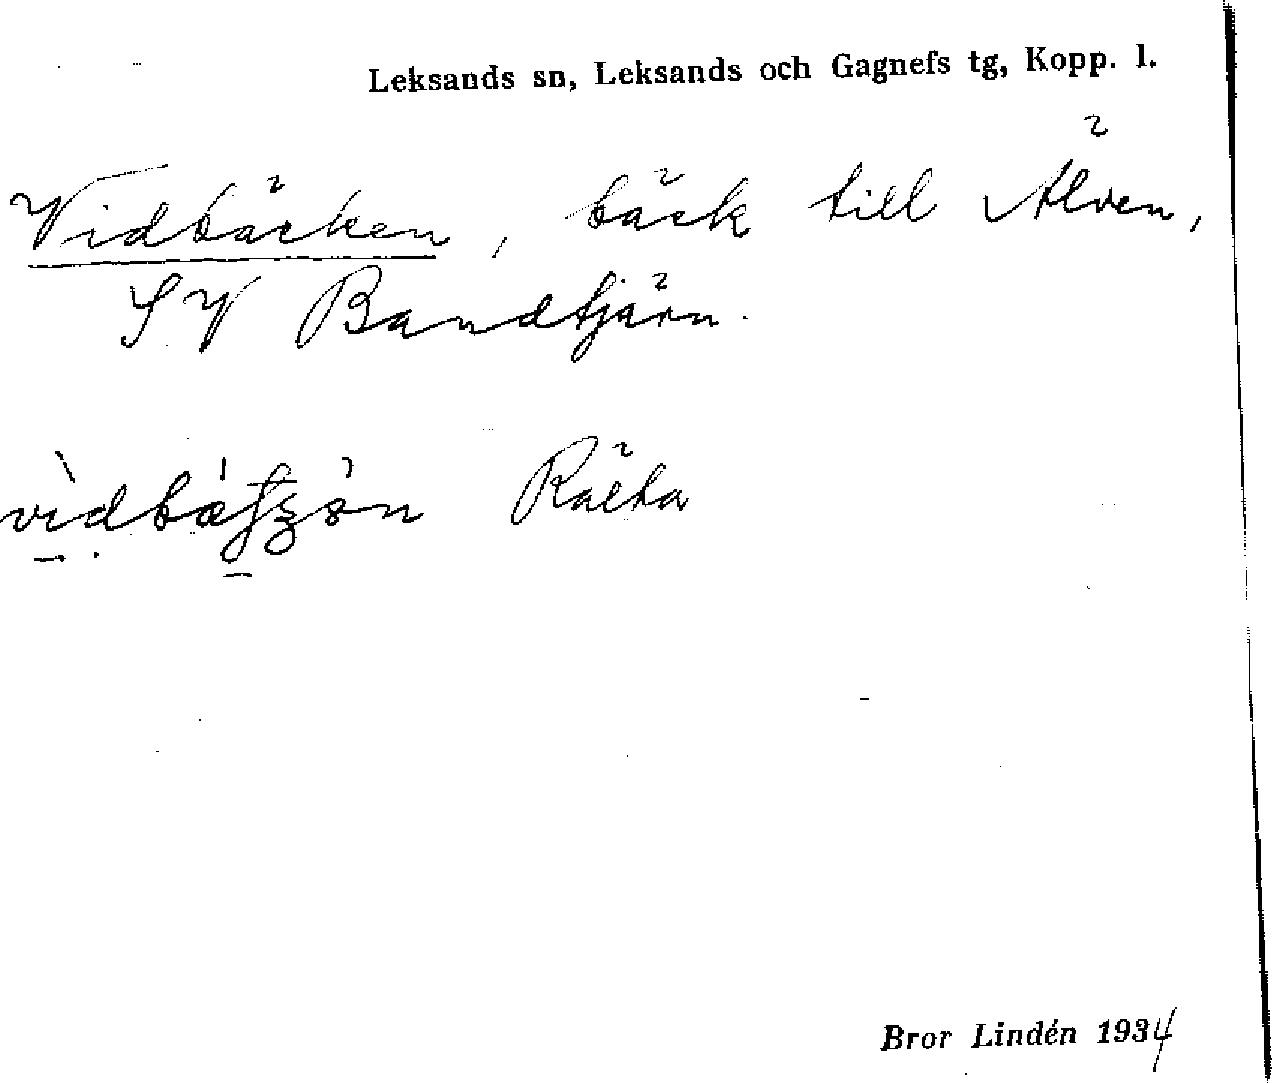 Leksands sn, Leksands och Gagnefs tg, Kopp. l.
Vidbäcken, bäck till Älven,
SV Bandtjärn.
Rälta
Bror Lindén 1934